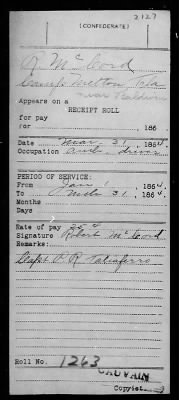 2127
(CONFEDERATE)
R McCord
Camp Mitton Fla
near Baldwin
Appears on a
RECEIPT ROLL
for pay
for 186
Date Mar 31, 1864
Occupation driver
PERIOD OF SERVICE:
From Jan 1 1864
To Mch 31, 1864.
Months
Days
Rate of pay 25
Signature Robert McCord
Remarks:
Capt P. R. Taliaferro
Roll No. 1263
CAUVAIN
Copyist